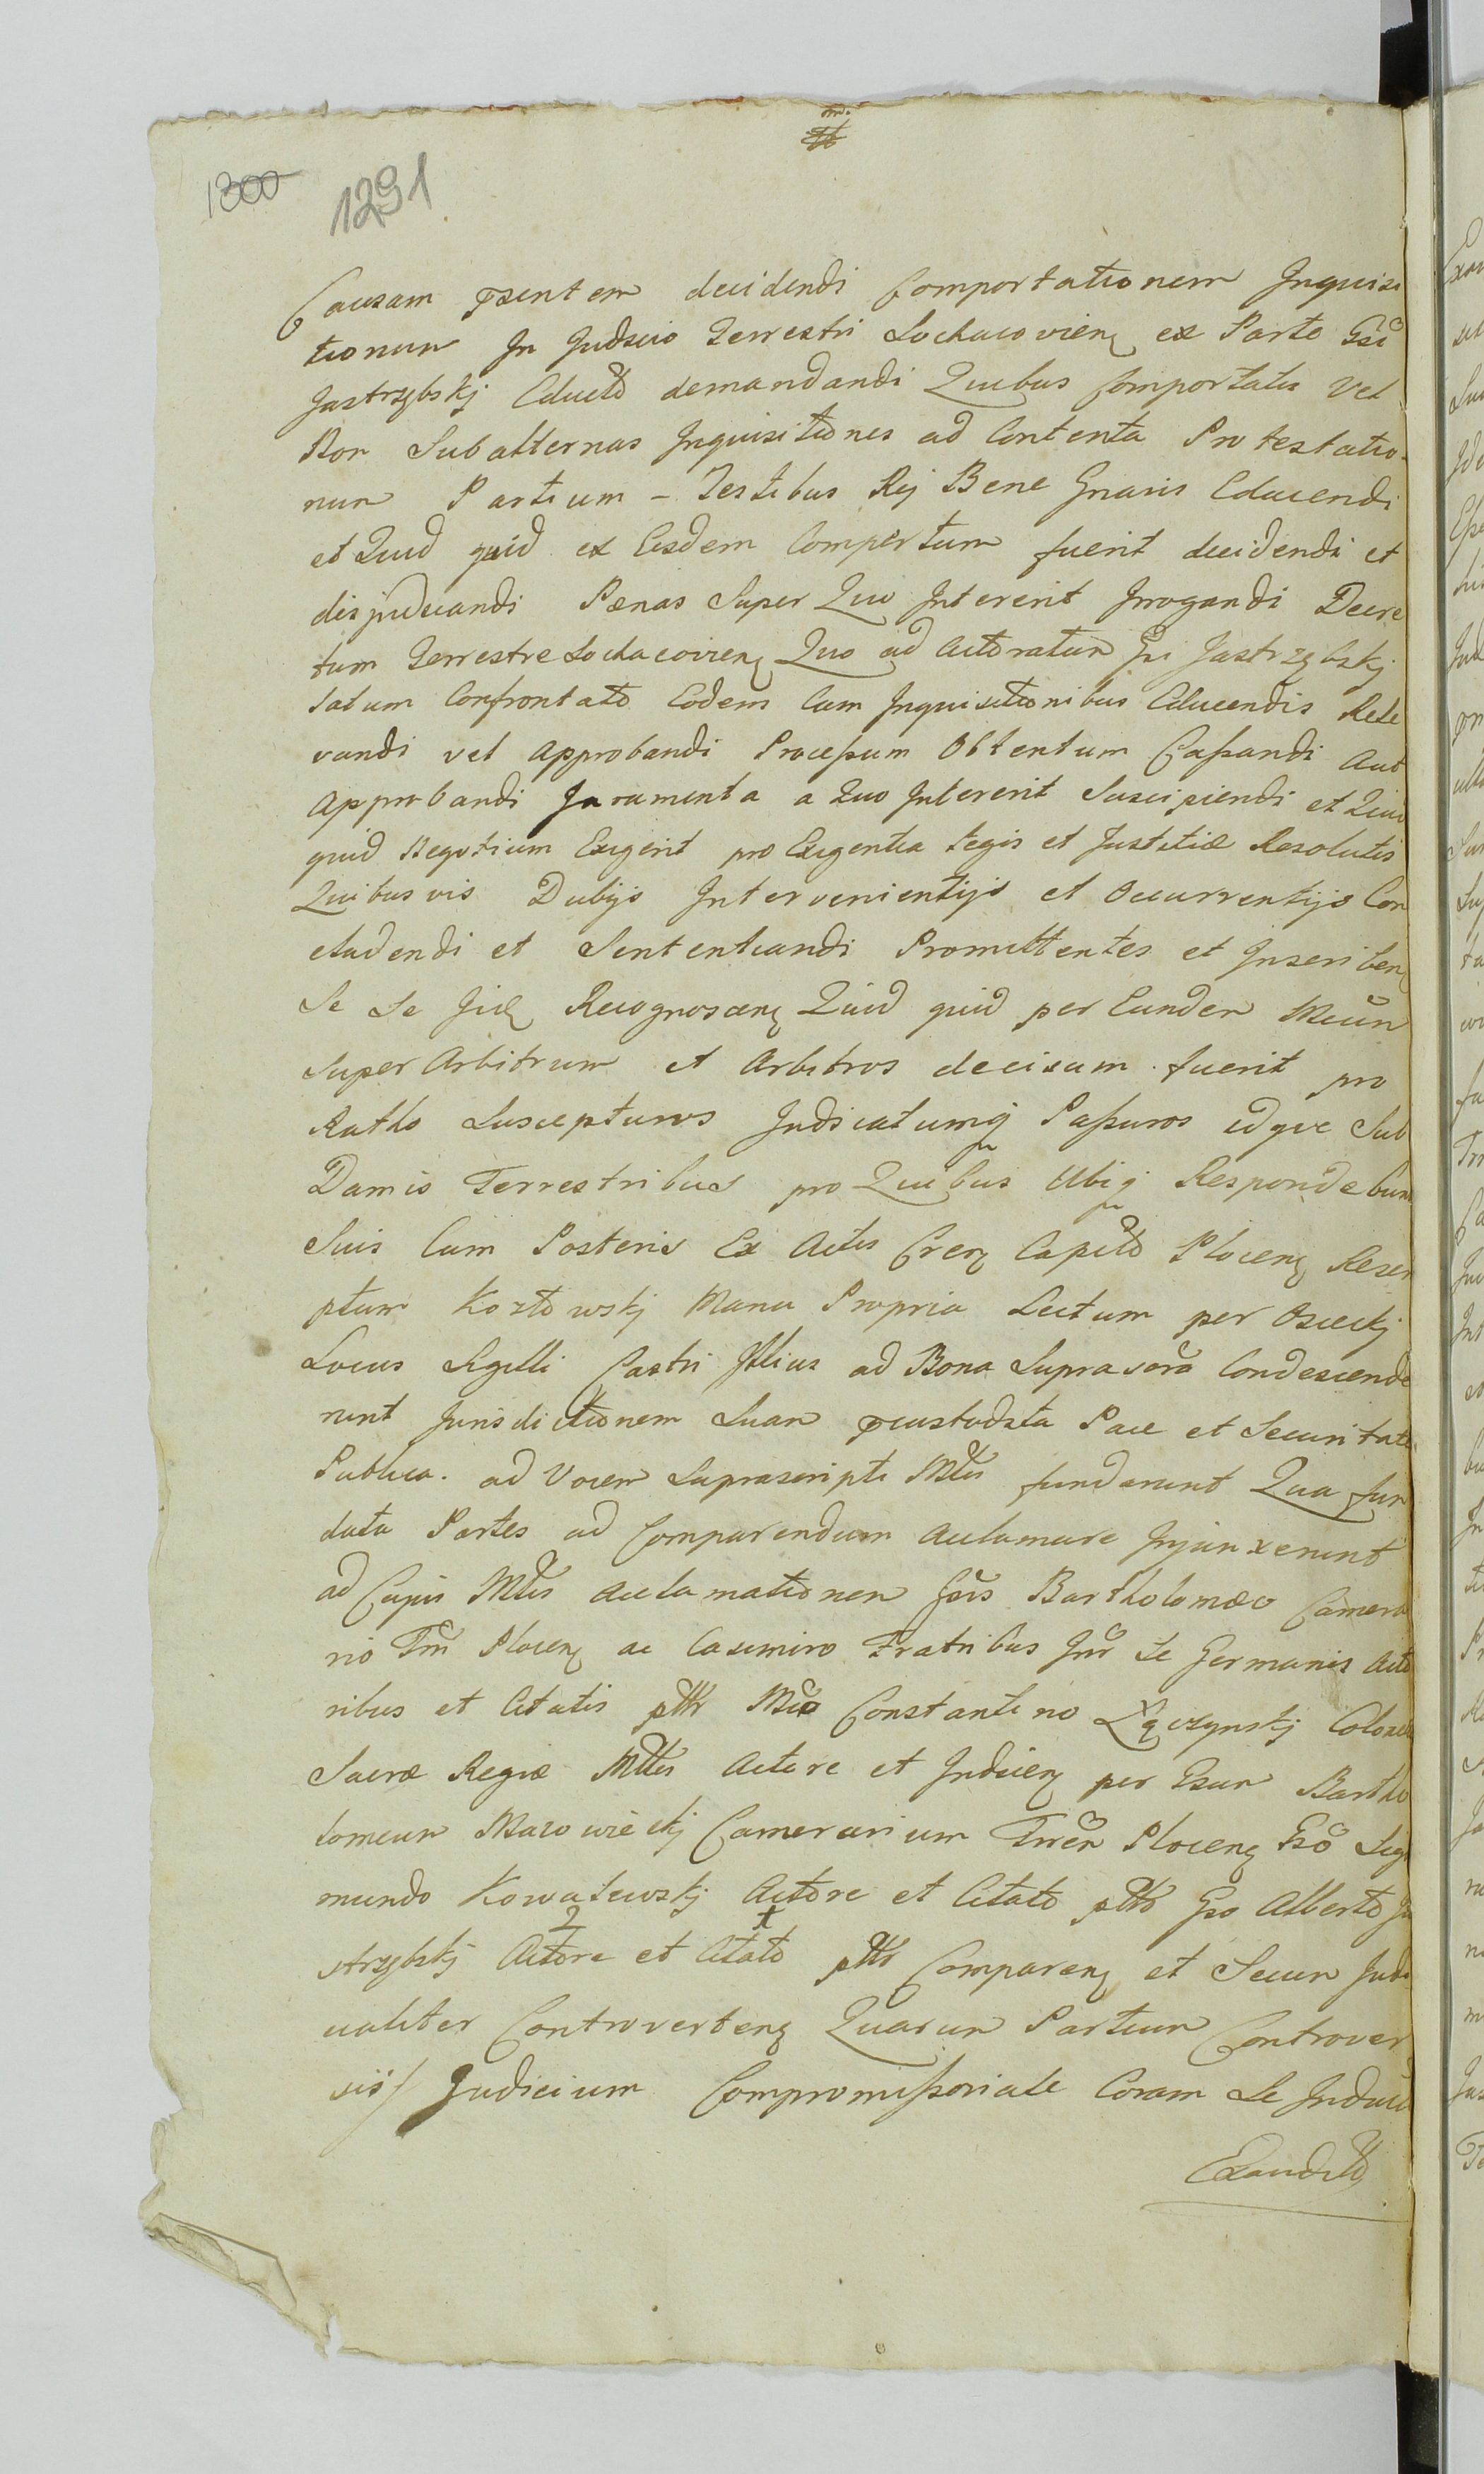 1300 1291
Causam psentem decidendi Comportationem Inquisi
tionum In Judicio Terrestri Sochacovien ex Parte Gsi
Jastrzębskj Educto demandandi Quibus Comportatis Vel
Non Subalternas Inquisitiones ad Contenta Protestatio-
num Partium - Testibus Rej Bene Gnaris Educendi
et Quid quid ex Eisdem Compertum fuerit decidendi et
disjudicandi Pænas Super Quo Intererit Irrogandi Decre
tum Terrestre Sochacovien Quo ad Actoratum Gsi Jastrzębskj
Latum Confrontato Eodem Cum Inquisitionibus Educendis Rele
vandi vel Approbandi Processum Obtentum Cassandi Aut
Approbandi Juramenta a Quo Intererit Suscipiendi et Quid
quid Negotium Exigerit pro Exigentia Legis et Justitiæ Resolutis
Quibus vis Dubijs Intervenientijs et Occurrentijs Con
cludendi et Sententiandi Promittentes et Inscriben
Se Se Recognoscen Quid quid per Eundem Mcum
Super Arbitrum et Arbitros decisum fuerit pro
Ratho Suscepturos Judicatumq Passuros idque Sub
Damis Terrestribus pro Quibus Ubiq Respondebunt
Suis Cum Posteris Ex Actis Cren Capito Plocen Rescri
ptum Kozłowskj Manu Propria Lectum per Osieckj
Locus Sigilli Castri Illius ad Bona Suprascra Condescende
runt Jurisdictionem Suam pcustodita Pace et Securitate
Publica. ad Vocem Suprascripti Mlis fundarunt Qua fun
data Partes ad Comparendum Acclamare Injunxerunt
ad Cujus Mlis Acclamationem Gsis Bartholomæo Camera
rio Trri Plocen ac Casimiro Fratribus Inr Se Germanis Acto
ribus et Citatis pttr Mco Constantino Łączynskj Colone
Sacræ Regiæ Mttis Actore et Inducen per Gsum Bartho
lomeum Mazowieckj Camerarium Trren Plocen Gso Sigi
mundo Kowalewskj Actore et Citato pttr Gso Alberto Ja
strzębskj Actore et Citato pttr Comparen et Secum Judi
cialiter Controverten Quarum Partium Controver
siis/ Judicium Compromissoriale Coram Se Induct
Exaudito